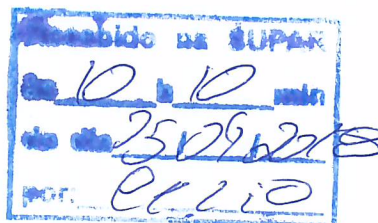 Recebido na SUPAR
às 10 h 10 min
do dia 25/09/2018
por: